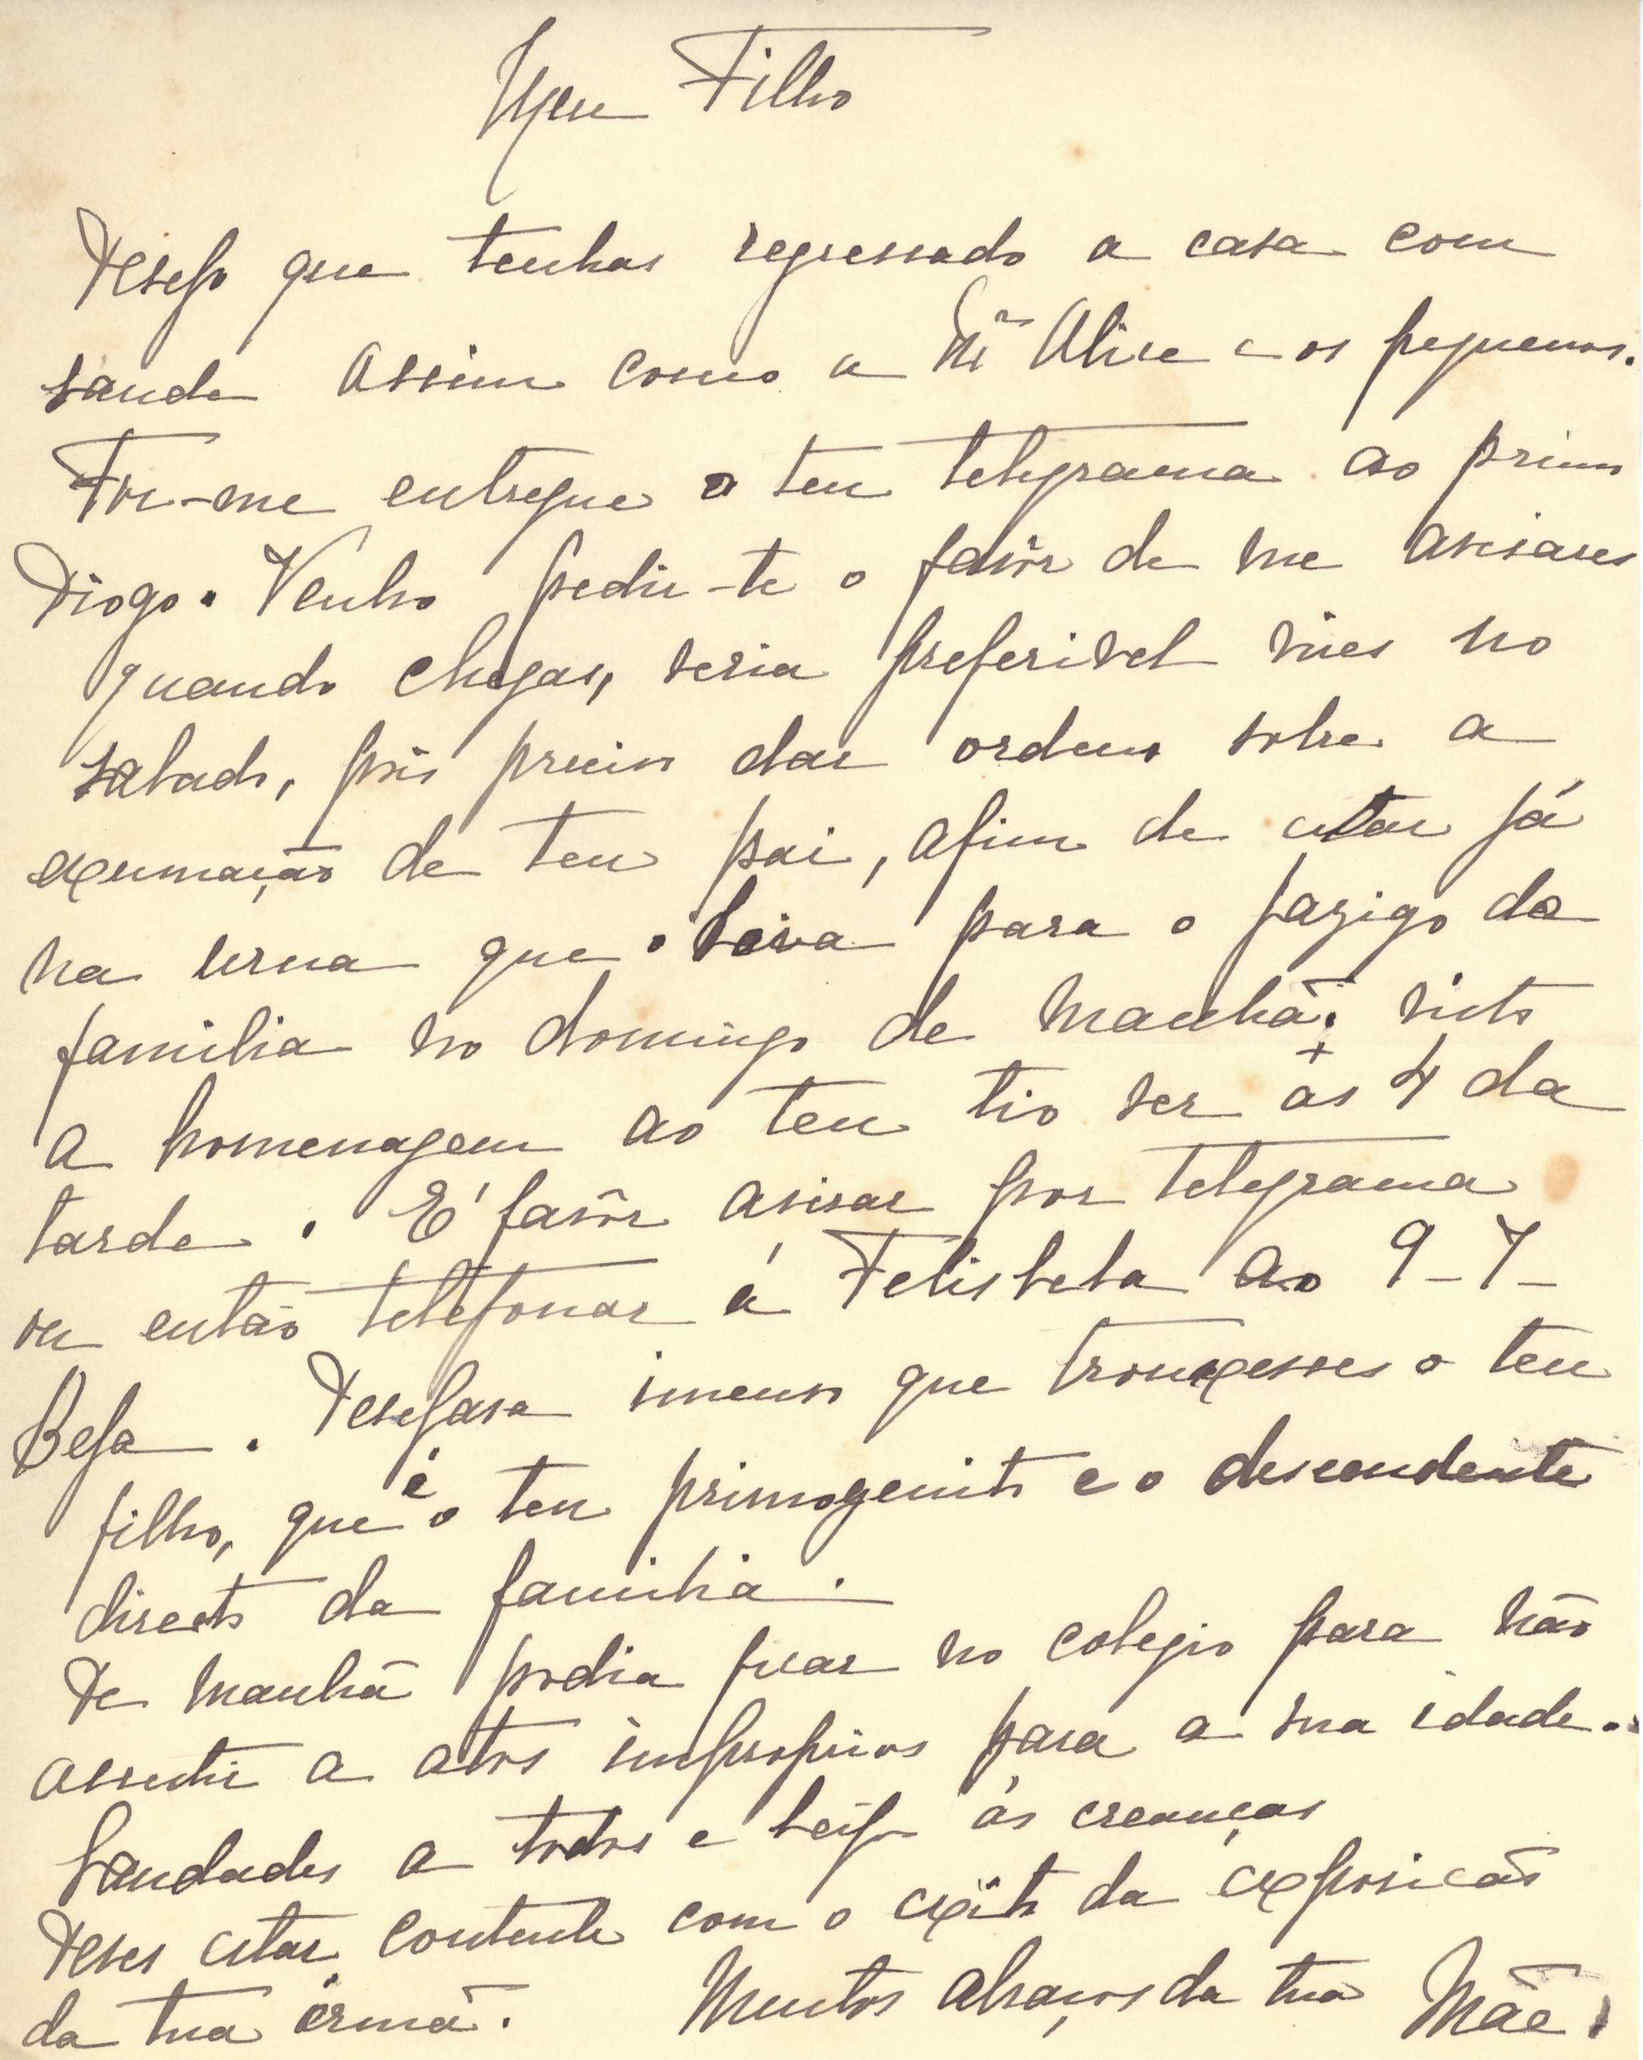 Meu Filho
Desejo que tenhas regressado a casa com
saude assim como a Mª Alice e os pequenos.
Foi-me entregue o teu telegrama ao primo
Diogo. Venho pedir-te o favôr de me avisares
quando chegas, seria preferivel vires no
sabado, pois preciso dar ordens sobre a
exumação de teu pai, afim de estar já
na urna que o leva para o jazigo da
familia no domingo de manhã, visto
a homenagem ao teu tio ser às 4 da
tarde. É favôr avisar por telegrama
ou então telefonar á Felisbela ao 9-7-
Beja. Desejava imenso que trouxesses o teu
filho, que é o teu primogenito e o descendente
directo da familia.
De manhã podia ficar no colegio para não
assistir a atos improprios para a sua idade.
Saudades a todos e beijos ás creanças
Deves estar contente com o exito da exposicão
da tua irmã. Muitos abraços da tua Mãe.